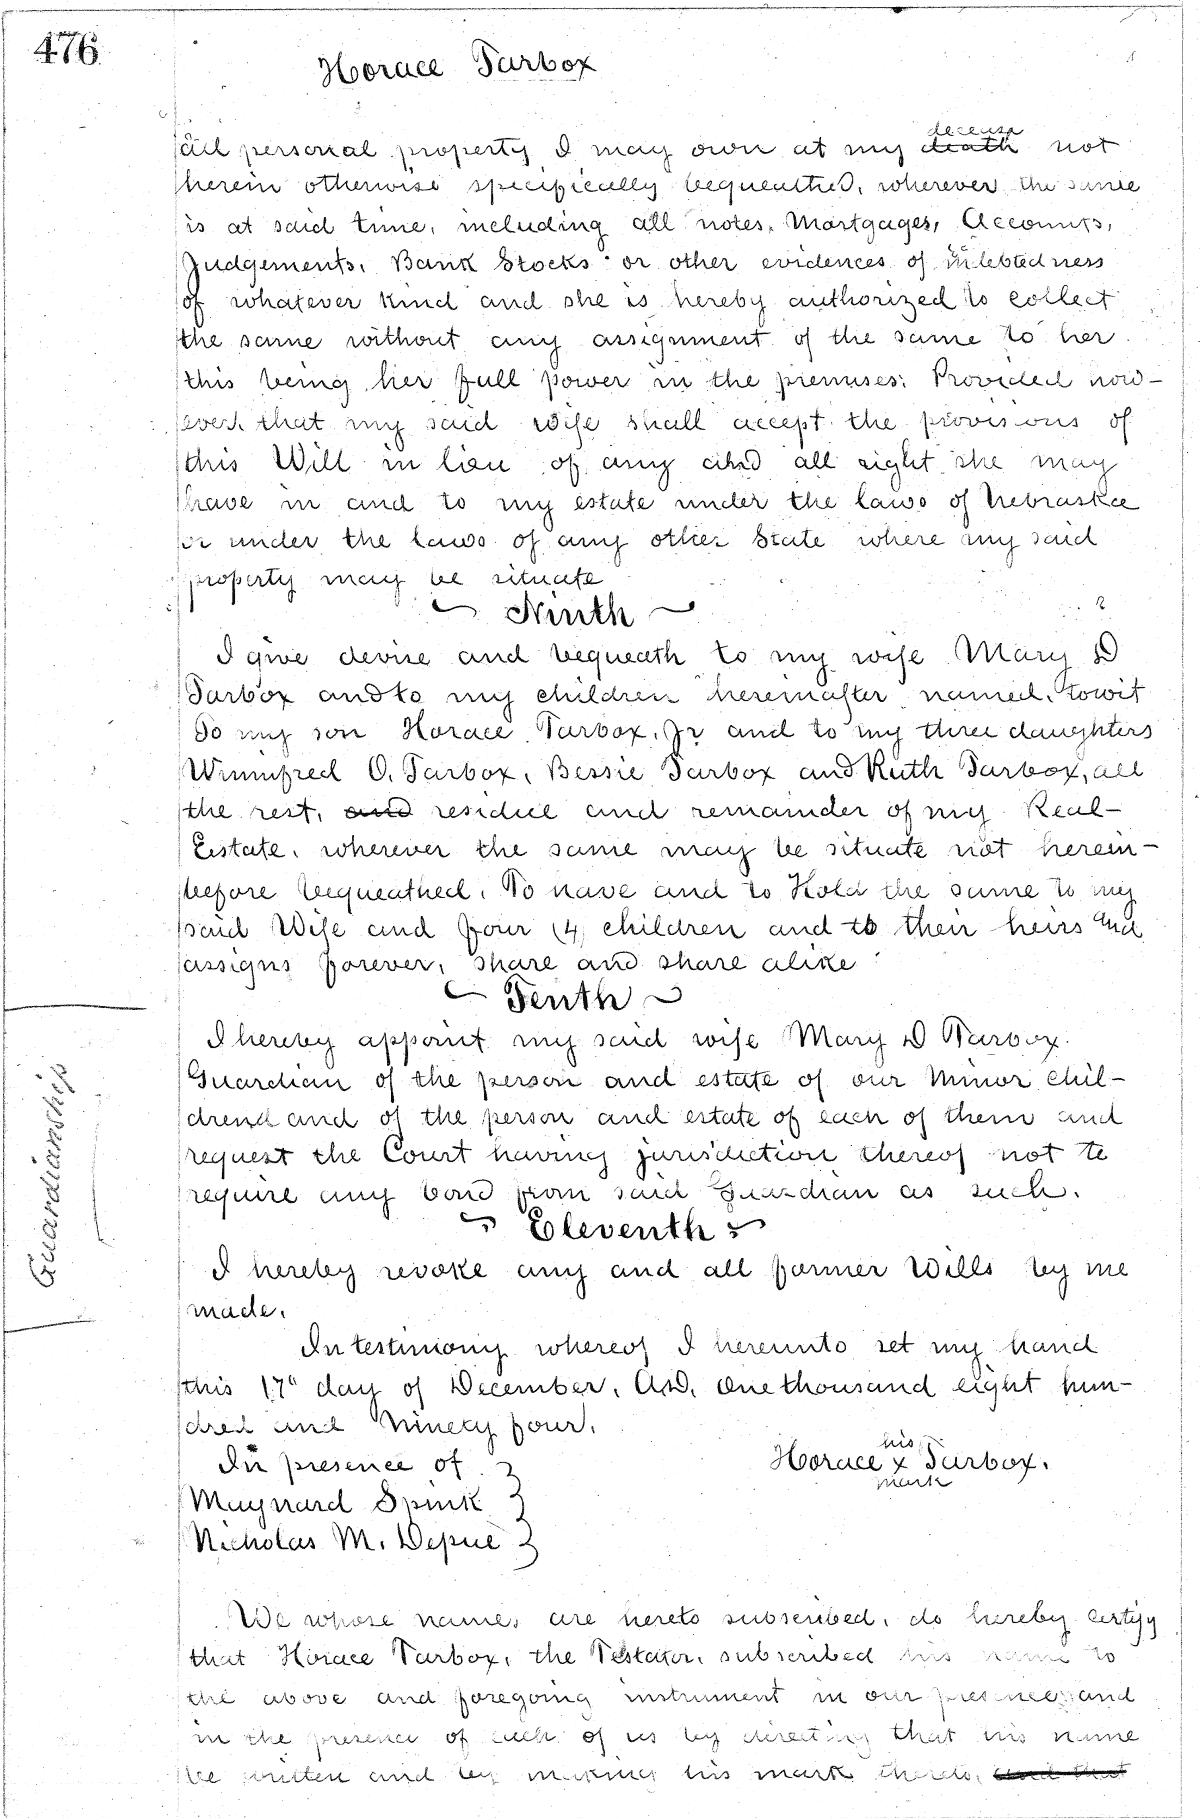 476
Horace Tarbox
all personal property I may own at my death decease not
herein otherwise specifically bequeathed, wherever the same
is at said time, including all notes, Mortgages, Accounts,
Judgements, Bank Stocks or other evidences of indebtedness
of whatever kind and she is hereby authorized to collect
the same without any assignment of the same to her
this being her full power in the premises: Provided how-
ever that my said wife shall accept the provisions of
this Will in lieu of any and all right she may
have in and to my estate under the laws of Nebraska
or under the laws of any other State where my said
property may be situate
Ninth
I give devise and bequeath to my wife Mary D
Tarbox and to my children hereinafter named, towit
To my son Horace Tarbox, Jr and to my three daughters
Winnifred O. Tarbox, Bessie Tarbox and Ruth Tarbox, all
the rest, and residue and remainder of my Real-
Estate, wherever the same may be situate not herein-
before bequeathed, To have and to Hold the same to my
said Wife and four (4) children and to their heirs and
assigns forever, share and share alike
Tenth
I hereby appoint my said wife Mary D Tarbox
Guardian of the person and estate of our Minor chil-
dren and of the person and estate of each of them and
request the Court having jurisdiction thereof not to
require any bond from said Guardian as such.
Guardianship
Eleventh
I hereby revoke any and all former Wills by me
made.
In testimony whereof I hereunto set my hand
this 17" day of December, A.D. One thousand eight hun-
dred and Ninety four.
In presence of
his
Horace x Tarbox.
mark
Maynard Spink
Nicholas M. Depue
We whose names are hereto subscribed, do hereby certify
that Horace Tarbox, the Testator, subscribed his name to
the above and foregoing instrument in our presence and
in the presence of each of us by directing that his name
be written and by making his mark thereto, and that